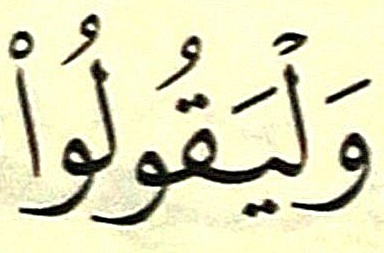 وَلْيَقُولُوا۟